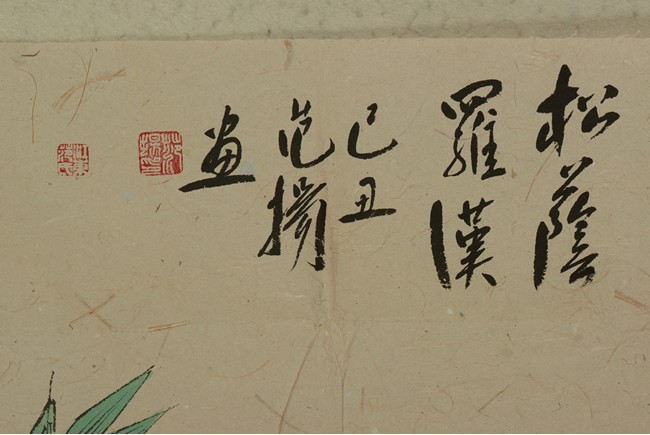 松蔭
羅漢
己丑
范揚
畫